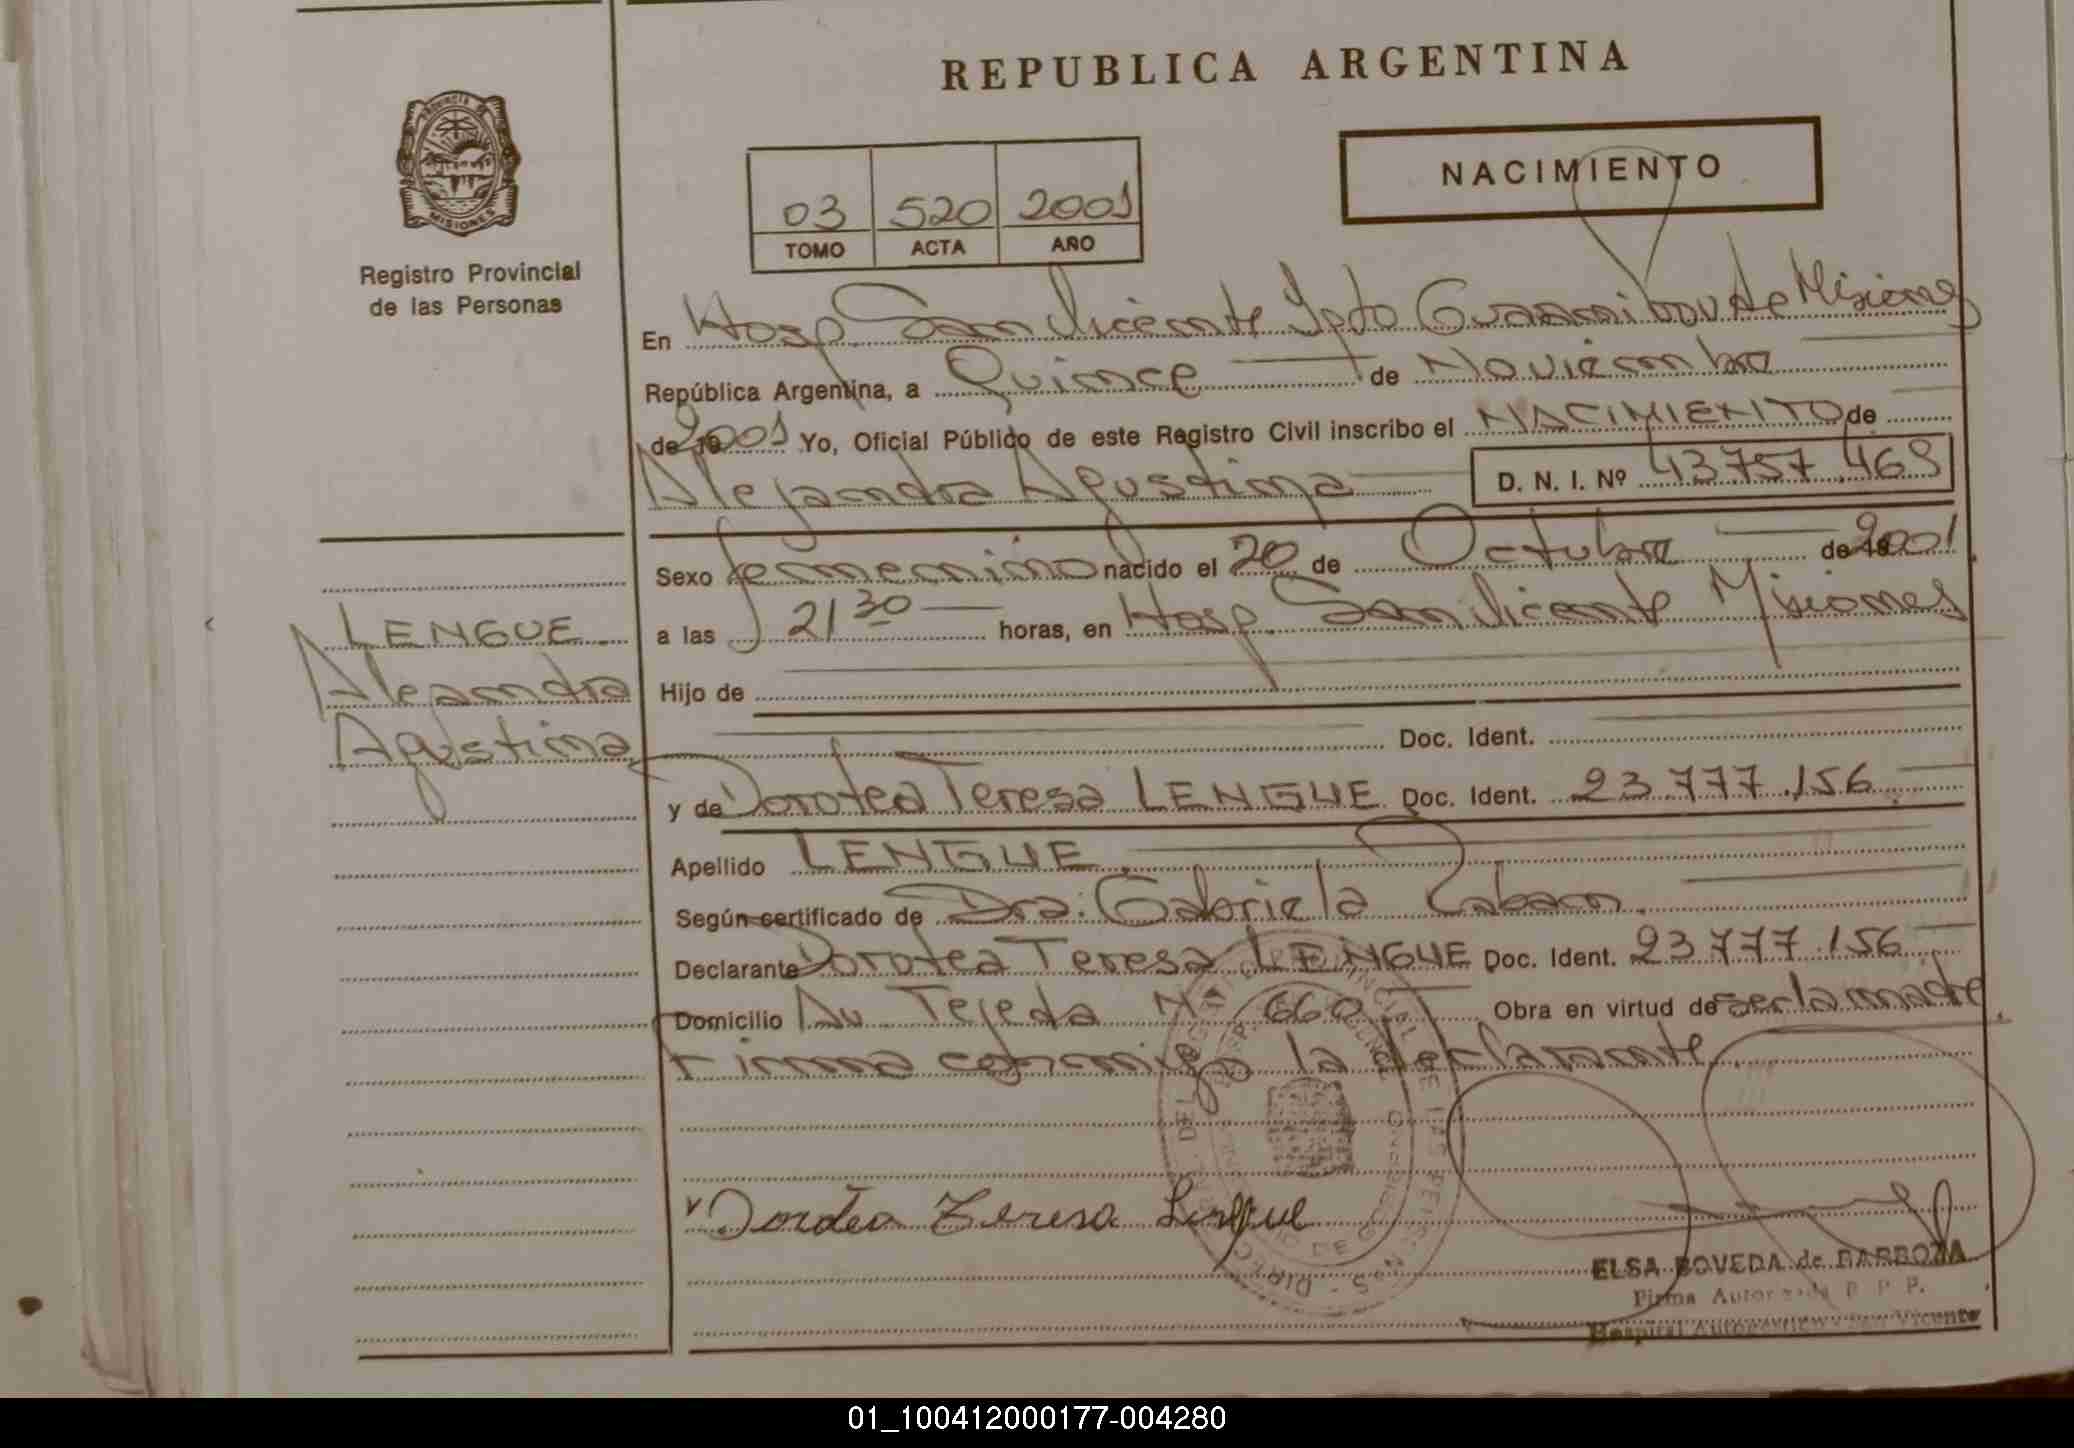 REPUBLICA ARGENTINA
PROVINCIA DE
MISIONES
Registro Provincial
de las Personas
NACIMIENTO
03 520 2001
TOMO ACTA AÑO
En Hosp. San Vicente Dpto Guarani Prov. de Misiones
República Argentina, a Quince de Noviembre
de 19 2001 Yo, Oficial Público de este Registro Civil inscribo el NACIMIENTO de
Alejandra Agustina D. N. I. Nº 43.757.469
Sexo femenino nacido el 20 de Octubre de 19 2001
a las 21 30 horas, en Hosp. San Vicente Misiones
Hijo de
Doc. Ident.
y de Dorotea Teresa LENGUE Doc. Ident. 23.777.156
Apellido LENGUE
Según certificado de Dra. Gabriela
Declarante Dorotea Teresa LENGUE Doc. Ident. 23.777.156
Domicilio Av Tejeda Nº 660 Obra en virtud de ser la madre
Firma conmigo la declarante
LENGUE
Alejandra
Agustina
Dorotea Teresa Lengue
ELSA BOVEDA de BARBOZA
Firma Autorizada R. P. P.
Hospital San Vicente
01_100412000177-004280